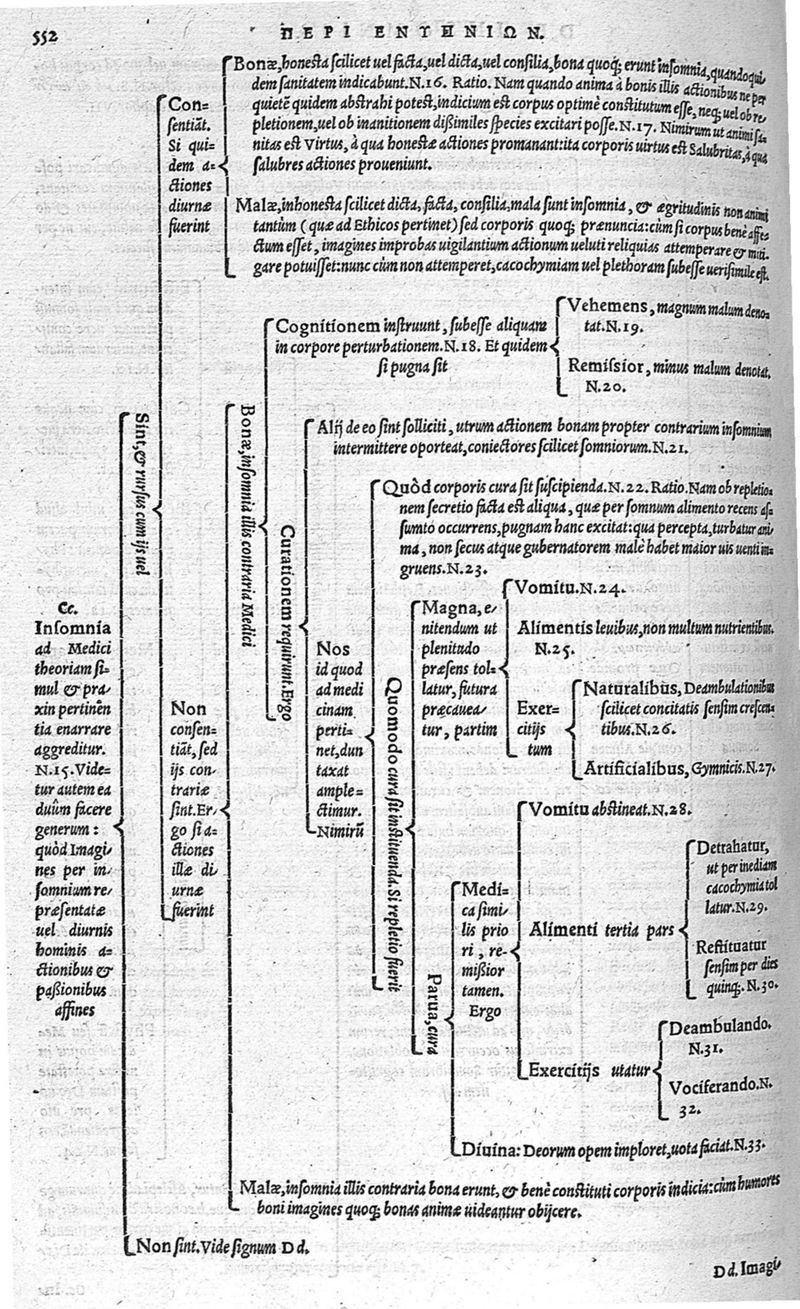 552
ΠΕΡΙ ΕΝΥΠΝΙΩΝ.
Cc.
Insomnia
ad Medici
theoriam si-
mul & pra-
xin pertinẽn
tia enarrare
aggreditur.
N.15. Vide-
tur autem ea
duûm facere
generum:
quòd Imagi
nes per in-
somnium re-
præsentatæ
uel diurnis
hominis a-
ctionibus &
passionibus
affines
Sint, & rursus cum ijs uel
Con-
sentiãt.
Si qui-
dem a-
ctiones
diurnæ
fuerint
Bonæ, honesta scilicet uel facta, uel dicta, uel consilia, bona quoq; erunt insomnia, quandoqui
dem sanitatem indicabunt. N.16. Ratio. Nam quando anima à bonis illis actionibus ne per
quietẽ quidem abstrahi potest, indicium est corpus optimè constitutum esse, neq; uel ob re
pletionem, uel ob inanitionem dißimiles species excitari posse. N.17. Nimirum ut animi sa-
nitas est Virtus, à qua honestæ actiones promanant: ita corporis uirtus est Salubritas, à qua
salubres actiones proueniunt.
Malæ, inhonesta scilicet dicta, facta, consilia, mala sunt insomnia, & ægritudinis non animi
tantùm (quæ ad Ethicos pertinet) sed corporis quoq; prænuncia: cùm si corpus benè affe-
ctum esset, imagines improbas uigilantium actionum ueluti reliquias attemperare & miti-
gare potuisset: nunc cùm non attemperet, cacochymiam uel plethoram subesse uerisimile est.
Non
consen-
tiãt, sed
ijs con-
trariæ
sint. Er-
go si a-
ctiones
illæ di-
urnæ
fuerint
Bonæ, insomnia illis contraria Medici
Cognitionem instruunt, subesse aliquam
in corpore perturbationem. N.18. Et quidem
si pugna sit
Vehemens, magnum malum deno-
tat. N.19.
Remissior, minus malum denotat.
N.20.
Curationem requirunt. Ergo
Alij de eo sint solliciti, utrum actionem bonam propter contrarium insomnium
intermittere oporteat, coniectores scilicet somniorum. N.21.
Nos
id quod
ad medi
cinam
perti-
net, dun
taxat
ample-
ctimur.
Nimirũ
Quòd corporis cura sit suscipienda. N.22. Ratio. Nam ob repletio-
nem secretio facta est aliqua, quæ per somnum alimento recens as-
sumto occurrens, pugnam hanc excitat: qua percepta, turbatur ani-
ma, non secus atque gubernatorem malè habet maior uis uenti in-
gruens. N.23.
Quomodo cura sit instituenda. Si repletio fuerit
Magna, e-
nitendum ut
plenitudo
præsens tol-
latur, futura
præcauea-
tur, partim
Vomitu. N.24.
Alimentis leuibus, non multum nutrientibus.
N.25.
Exer-
citijs
tum
Naturalibus, Deambulationibus
scilicet concitatis sensim crescen-
tibus. N.26.
Artificialibus, Gymnicis. N.27.
Parua, cura
Medi-
ca simi-
lis prio
ri, re-
mißior
tamen.
Ergo
Vomitu abstineat. N.28.
Alimenti tertia pars
Detrahatur,
ut per inediam
cacochymia tol
latur. N.29.
Restituatur
sensim per dies
quinq;. N.30.
Exercitijs utatur
Deambulando.
N.31.
Vociferando. N.
32.
Diuina: Deorum opem imploret, uota faciat. N.33.
Malæ, insomnia illis contraria bona erunt, & benè constituti corporis indicia: cùm humores
boni imagines quoq; bonas animæ uideantur obijcere.
Non sint. Vide signum Dd.
Dd. Imagi-